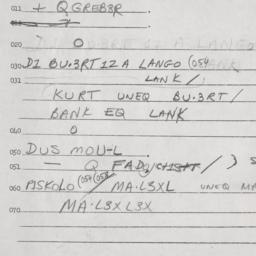 011 + QGREB3R
020 O
030 DI BU.3RT 12 A LANGO (054
031 LANK /
KURT UNEQ BU.3RT /
BANK EQ LANK
040 O
050 DUS MOU-L
051 — Q FAD / ) S
060 PISKOLO (054 (058 / MA.L3XL UNEQ MA
070 MA.L3XL3X